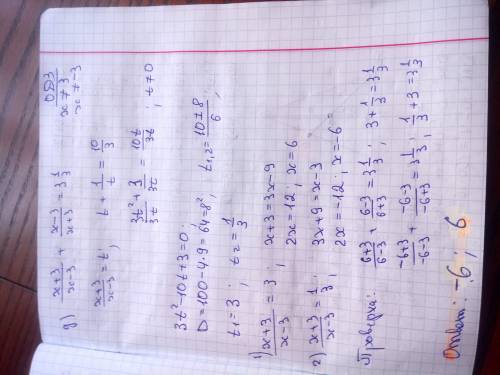 д) (x+3)/(x-3) + (x-3)/(x+3) = 3 1/3 ОДЗ x≠3 x≠-3
(x+3)/(x-3) = t; t + 1/t = 10/3
(3t²+3)/3t = 10t/3t; t≠0
3t²-10t+3=0.
D=100-4·9=64=8²; t1,2 = (10±8)/6;
t1=3; t2=1/3
1) (x+3)/(x-3) = 3; x+3=3x-9
2x=12; x=6
2) (x+3)/(x-3) = 1/3; 3x+9=x-3
2x=-12; x=-6
Проверка: (6+3)/(6-3) + (6-3)/(6+3) = 3 1/3; 3+1/3=3 1/3
(-6+3)/(-6-3) + (-6-3)/(-6+3) = 3 1/3; 1/3+3=3 1/3
Ответ: -6; 6